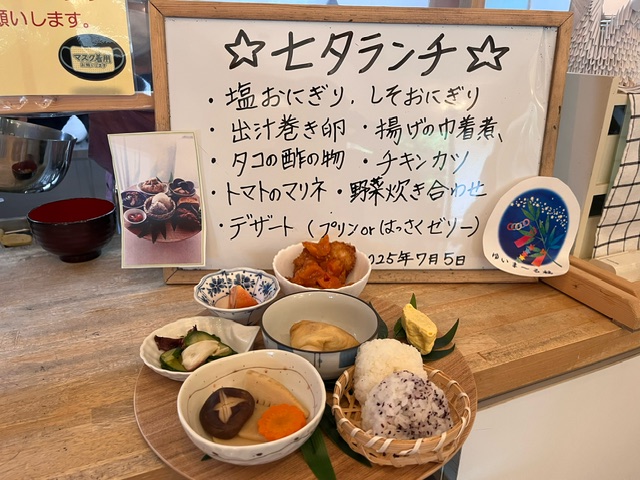 願いします。
マスク着用
☆七夕ランチ☆
・塩おにぎり、しそおにぎり
・出汁巻き卵 ・揚げの巾着煮、
・タコの酢の物 ・チキンカツ
・トマトのマリネ ・野菜炊き合わせ
・デザート(プリンorはっさくゼリー)
025年7月5日